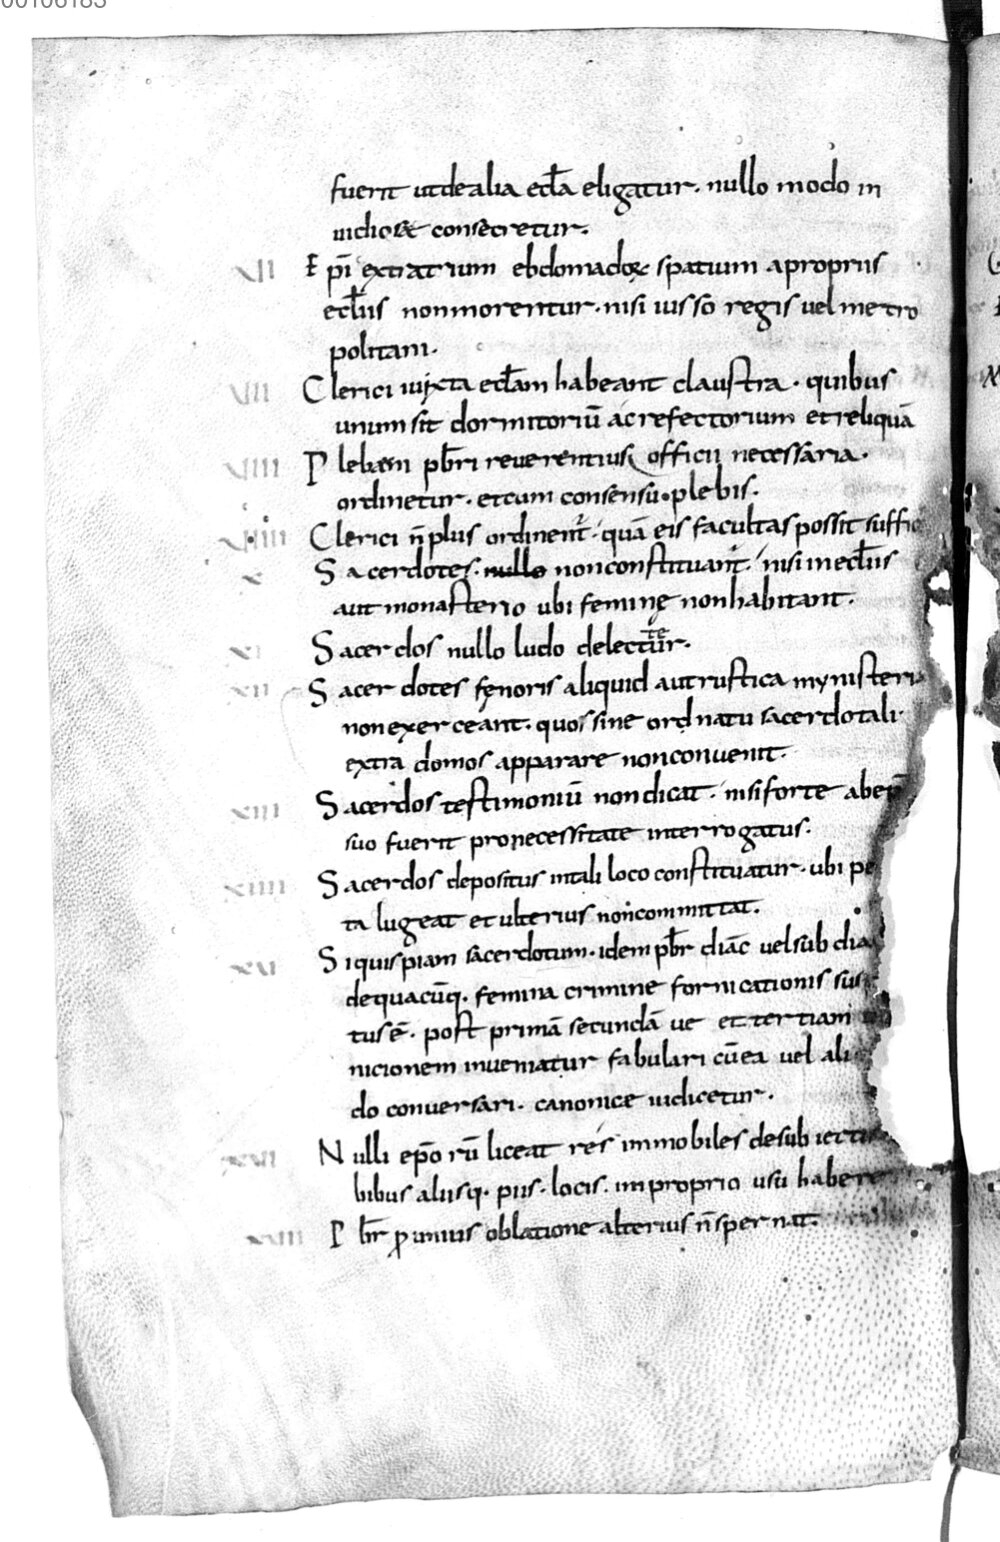 fuerit ut de alia eccła eligatur. nullo modo in
uidiose consecretur.
XII Epī extra trium ebdomadoꝝ spatium a propriis
eccłiis non morentur. nisi iusso regis uel metro
politani.
VII Clerici iuxta eccłam habeant claustra. quibus
unum sit dormitoriū ac refectorium et reliquā
VIIII Plebem pƀri reuerentius officii necessaria.
ordinetur. et cum consensu plebis.
Clerici n̄ plus ordinent̄. quā eis facultas possit
X Sacerdotes. nullo non constituant̄. nisi in eccłiis
aut monasterio ubi feminę non habitant.
XI Sacerdos nullo ludo delectur.
XII Sacerdotes fęnoris aliquid aut rustica
non exerceant. quos sine ordnatu sacerdotali.
extra domos apparare non conuenit.
XIII Sacerdos testimoniū non dicat. nisi forte ab
suo fuerit pro necessitate interrogatus.
XIIII Sacerdos depositus in tali loco constituatur. ubi pe
ta lugeat et ulterius non committat.
XVI Si quispiam sacerdotum. idem pƀr diāc uel sub dia
de quacūq. femina crimine fornicationis sus
tus ē. post primā secundā ue et tertiam
nicionem inueniatur fabulari cū ea uel ali
do conuersari. canonice iudicetur.
XVII Nulli epō rū liceat res immobiles de sub
bibus aliisq. piis. locis. in proprio usu habere
XVIII Pƀr ꝓ unius oblatione alterius n̄ spernat.